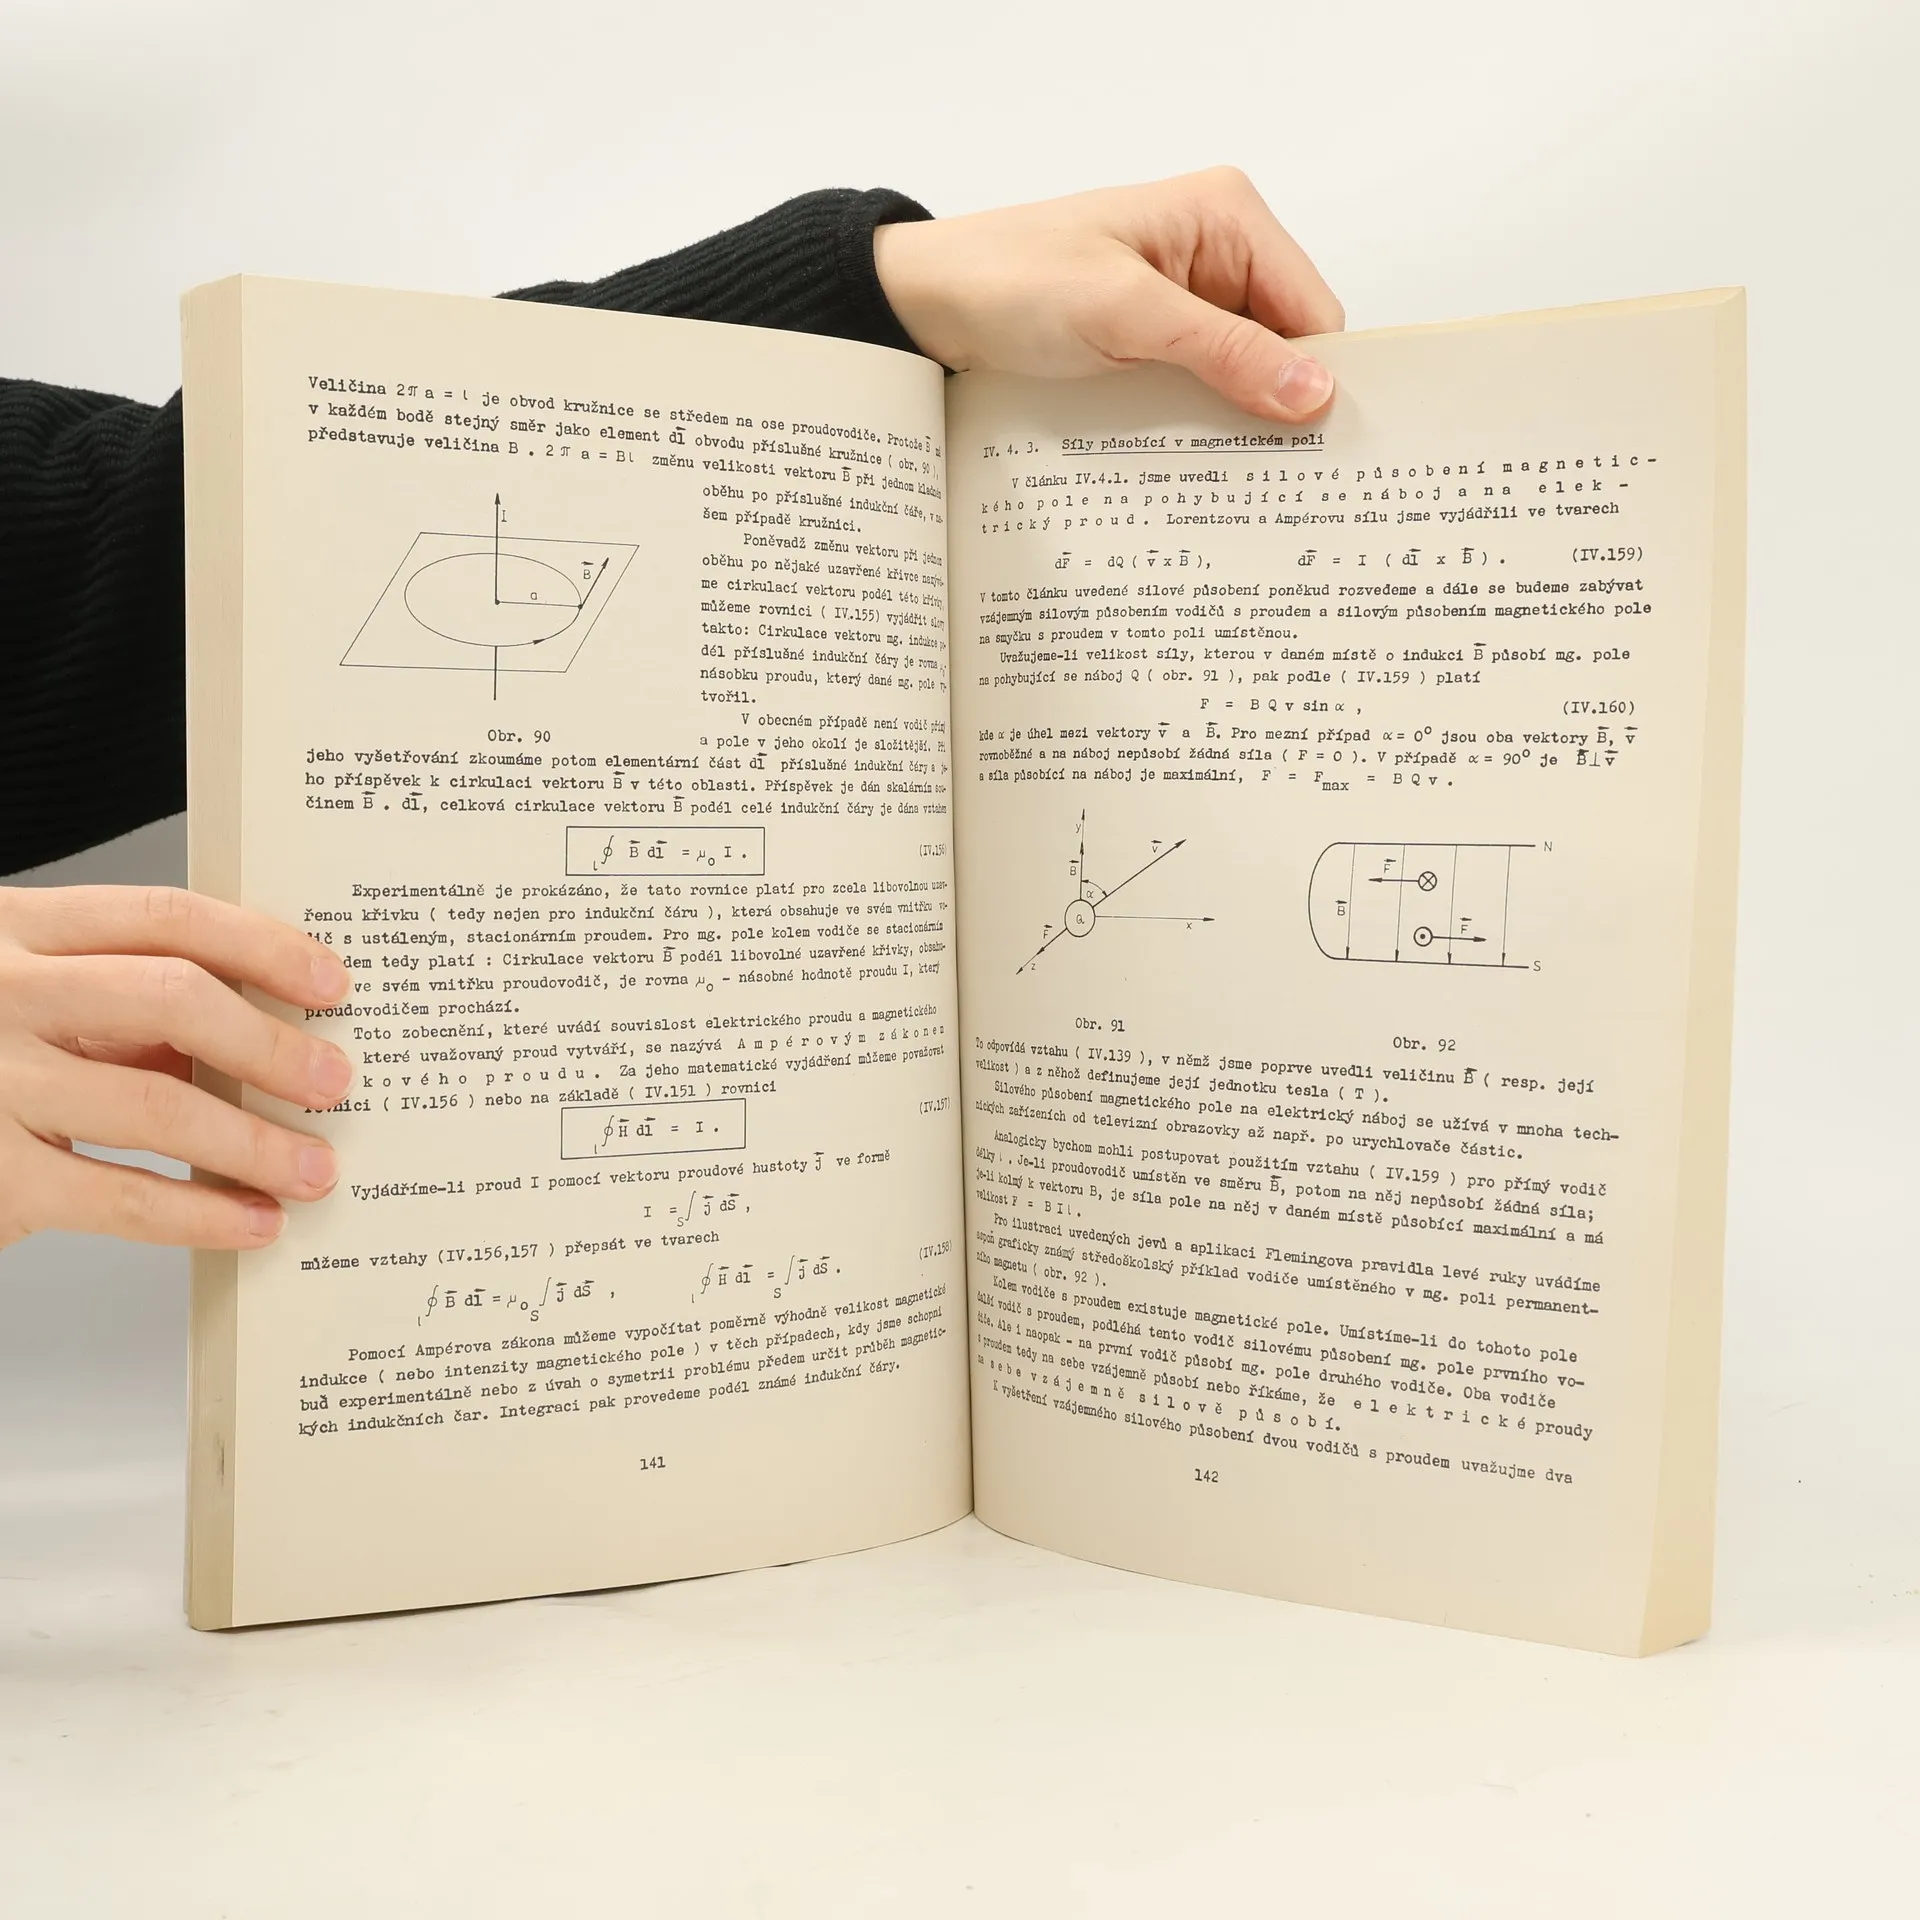 Veličina 2π a = l je obvod kružnice se středem na ose proudovodiče. Protože B̄
v každém bodě stejný směr jako element dl̄ obvodu příslušné kružnice ( obr. 90 ),
představuje veličina B . 2 π a = Bl změnu velikosti vektoru B̄ při jednom
oběhu po příslušné indukční čáře, v
šem případě kružnici.
Poněvadž změnu vektoru při
oběhu po nějaké uzavřené křivce
me cirkulací vektoru podél této křivky,
můžeme rovnici ( IV.155) vyjádřit
takto: Cirkulace vektoru mg. indukce
dél příslušné indukční čáry je rovna
násobku proudu, který dané mg. pole
tvořil.
V obecném případě není vodič
a pole v jeho okolí je složitější. Při
I
B̄
a
Obr. 90
jeho vyšetřování zkoumáme potom elementární část dl̄ příslušné indukční čáry a
ho příspěvek k cirkulaci vektoru B̄ v této oblasti. Příspěvek je dán skalárním sou-
činem B̄ . dl̄, celková cirkulace vektoru B̄ podél celé indukční čáry je dána vztahem
∮l B̄ dl̄ = μ₀ I . (IV.156)
Experimentálně je prokázáno, že tato rovnice platí pro zcela libovolnou uzav-
řenou křivku ( tedy nejen pro indukční čáru ), která obsahuje ve svém vnitřku vo-
s ustáleným, stacionárním proudem. Pro mg. pole kolem vodiče se stacionárním
dem tedy platí : Cirkulace vektoru B̄ podél libovolné uzavřené křivky, obsahu-
ve svém vnitřku proudovodič, je rovna μ₀ - násobné hodnotě proudu I, který
proudovodičem prochází.
Toto zobecnění, které uvádí souvislost elektrického proudu a magnetického
které uvažovaný proud vytváří, se nazývá A m p é r o v ý m z á k o n e m
k o v é h o p r o u d u . Za jeho matematické vyjádření můžeme považovat
( IV.156 ) nebo na základě ( IV.151 ) rovnici
∮l H̄ dl̄ = I . (IV.157)
Vyjádříme-li proud I pomocí vektoru proudové hustoty j̄ ve formě
I = S∫ j̄ dS̄ ,
můžeme vztahy (IV.156,157 ) přepsat ve tvarech
∮l B̄ dl̄ = μ₀ S∫ j̄ dS̄ , ∮l H̄ dl̄ = S∫ j̄ dS̄ . (IV.158)
Pomocí Ampérova zákona můžeme vypočítat poměrně výhodně velikost magnetické
indukce ( nebo intenzity magnetického pole ) v těch případech, kdy jsme schopni
buď experimentálně nebo z úvah o symetrii problému předem určit průběh magnetic-
kých indukčních čar. Integraci pak provedeme podél známé indukční čáry.
141
IV. 4. 3. Síly působící v magnetickém poli
V článku IV.4.1. jsme uvedli s i l o v é p ů s o b e n í m a g n e t i c -
k é h o p o l e n a p o h y b u j í c í s e n á b o j a n a e l e k -
t r i c k ý p r o u d . Lorentzovu a Ampérovu sílu jsme vyjádřili ve tvarech
dF̄ = dQ ( v̄ x B̄ ), dF̄ = I ( dl̄ x B̄ ) . (IV.159)
V tomto článku uvedené silové působení poněkud rozvedeme a dále se budeme zabývat
vzájemným silovým působením vodičů s proudem a silovým působením magnetického pole
na smyčku s proudem v tomto poli umístěnou.
Uvažujeme-li velikost síly, kterou v daném místě o indukci B̄ působí mg. pole
na pohybující se náboj Q ( obr. 91 ), pak podle ( IV.159 ) platí
F = B Q v sin α , (IV.160)
kde α je úhel mezi vektory v̄ a B̄. Pro mezní případ α = 0° jsou oba vektory B̄, v̄
rovnoběžné a na náboj nepůsobí žádná síla ( F = 0 ). V případě α = 90° je B̄⊥v̄
a síla působící na náboj je maximální, F = Fmax = B Q v .
y
B̄
v̄
α
Q
x
F̄
z
Obr. 91
N
F̄
B̄
F̄
S
Obr. 92
To odpovídá vztahu ( IV.139 ), v němž jsme poprve uvedli veličinu B̄ ( resp. její
velikost ) a z něhož definujeme její jednotku tesla ( T ).
Silového působení magnetického pole na elektrický náboj se užívá v mnoha tech-
nických zařízeních od televizní obrazovky až např. po urychlovače částic.
Analogicky bychom mohli postupovat použitím vztahu ( IV.159 ) pro přímý vodič
délky l . Je-li proudovodič umístěn ve směru B̄, potom na něj nepůsobí žádná síla;
je-li kolmý k vektoru B, je síla pole na něj v daném místě působící maximální a má
velikost F = B I l .
Pro ilustraci uvedených jevů a aplikaci Flemingova pravidla levé ruky uvádíme
aspoň graficky známý středoškolský příklad vodiče umístěného v mg. poli permanent-
ního magnetu ( obr. 92 ).
Kolem vodiče s proudem existuje magnetické pole. Umístíme-li do tohoto pole
další vodič s proudem, podléhá tento vodič silovému působení mg. pole prvního vo-
diče. Ale i naopak - na první vodič působí mg. pole druhého vodiče. Oba vodiče
s proudem tedy na sebe vzájemně působí nebo říkáme, že e l e k t r i c k é proudy
n a s e b e v z á j e m n ě s i l o v ě p ů s o b í .
K vyšetření vzájemného silového působení dvou vodičů s proudem uvažujme dva
142